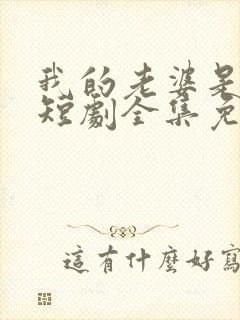 我的老婆是
短劇全集免
這有什麼好寫